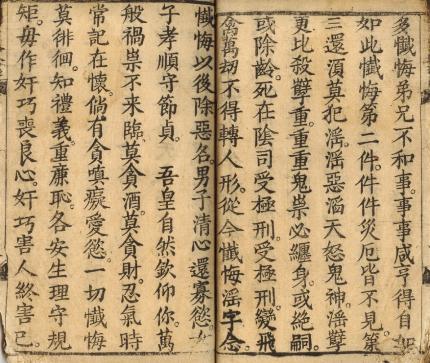 多懺悔弟兄不和事事事咸亨得自
如此懺悔第二件件件災厄皆不見第
三還須莫犯淫淫惡滔天怒鬼神淫孽
更比殺孽重重重鬼祟必纏身或絕嗣
或除齡死在陰司受極刑受極刑變飛
禽萬劫不得轉人形從今懺悔淫字念
懺悔以後除惡名男子清心還寡慾
子孝順守節貞 吾皇自然欽仰你萬
般禍祟不來臨莫貪酒莫貪財忍氣時
常記在懷倘有貪嗔癡愛慾一切懺悔
莫徘徊知禮義重廉恥各安生理守規
矩毋作奸巧喪良心奸巧害人終害己